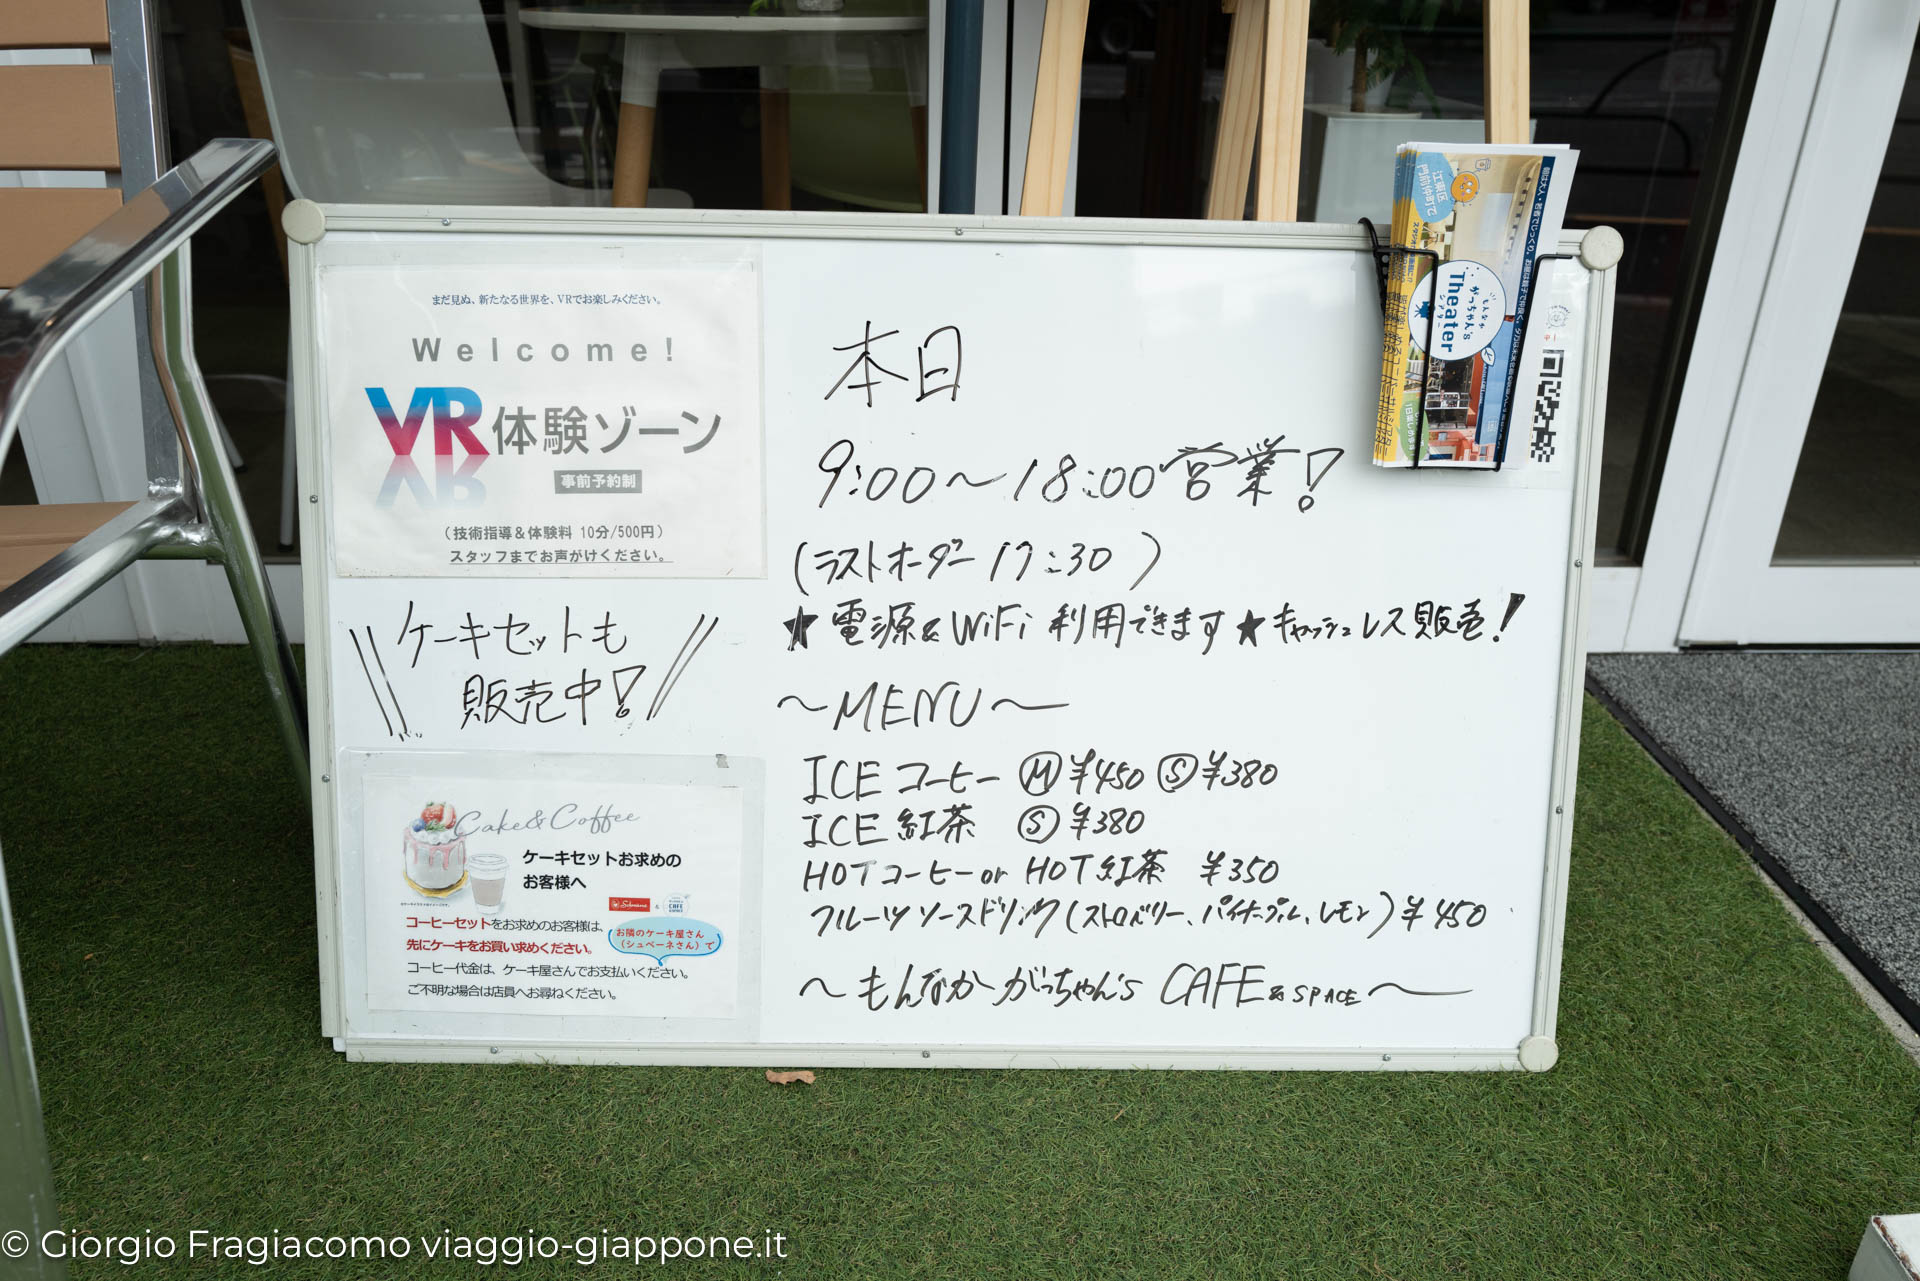 まだ見ぬ、新たなる世界を、VRでお楽しみください。
Welcome!
VR体験ゾーン
事前予約制
(技術指導&体験料 10分/500円)
スタッフまでお声がけください。
ケーキセットも
販売中!
Cake&Coffee
ケーキセットお求めの
お客様へ
コーヒーセットをお求めのお客様は、
先にケーキをお買い求めください。
お隣のケーキ屋さん
(シュベーネさん)で
コーヒー代金は、ケーキ屋さんでお支払いください。
ご不明な場合は店員へお尋ねください。
本日
9:00〜18:00営業!
(ラストオーダー 17:30)
★電源&WiFi 利用できます★キャッシュレス販売!
〜MENU〜
ICE コーヒー Ⓜ ¥450 Ⓢ ¥380
ICE 紅茶 Ⓢ ¥380
HOTコーヒー or HOT紅茶 ¥350
フルーツソースドリンク(ストロベリー、パイナップル、レモン) ¥450
〜もんなか がっちゃん's CAFE & SPACE〜
江東区
門前仲町で
もんなか
がっちゃん's
シアター
Theater
© Giorgio Fragiacomo viaggio-giappone.it